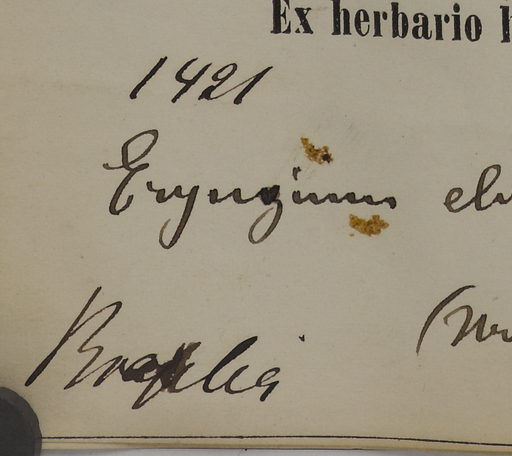 Ex herbario
1421
Eryngium
Brasilia